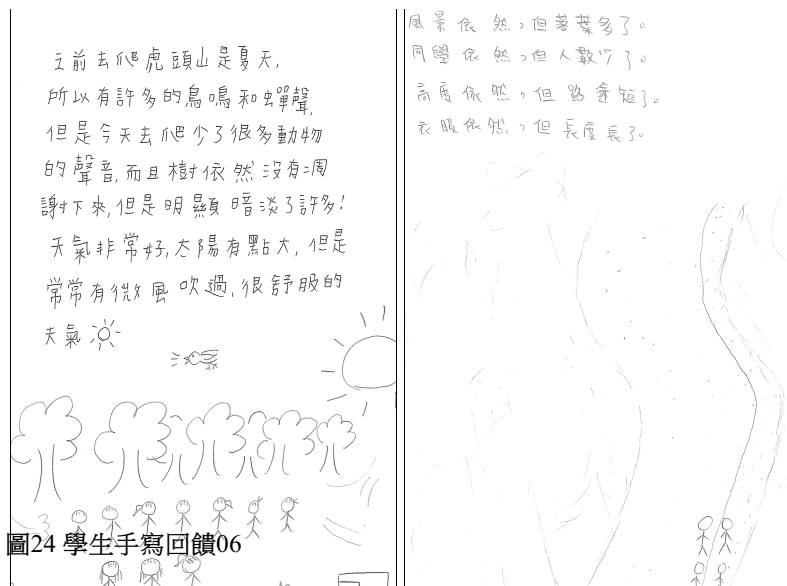 之前去爬虎頭山是夏天,
所以有許多的鳥鳴和蟬聲,
但是今天去爬少了很多動物
的聲音,而且樹依然沒有凋
謝下來,但是明顯暗淡了許多!
天氣非常好,太陽有點大,但是
常常有微風吹過,很舒服的
天氣
風景依然,但落葉多了。
同學依然,但人數少了。
高度依然,但路途短了。
衣服依然,但長度長了。
圖24 學生手寫回饋06